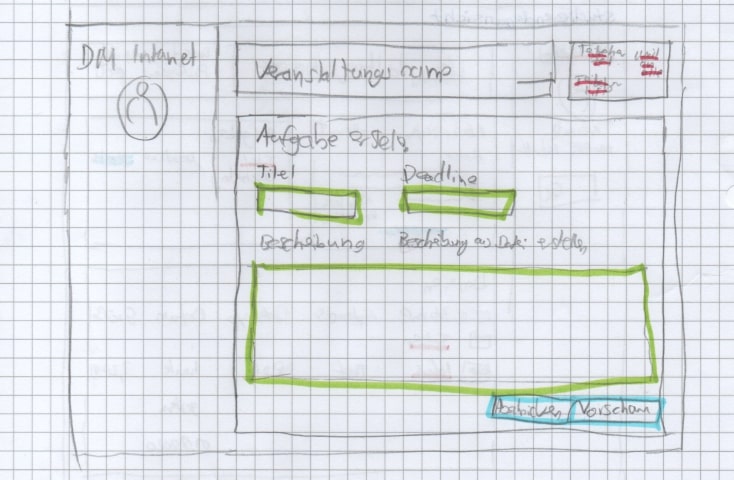 DM Intranet
Veranstaltungsname
Aufgabe erstellen
Titel Deadline
Beschreibung Beschreibung aus Datei erstellen
Abschicken Vorschau